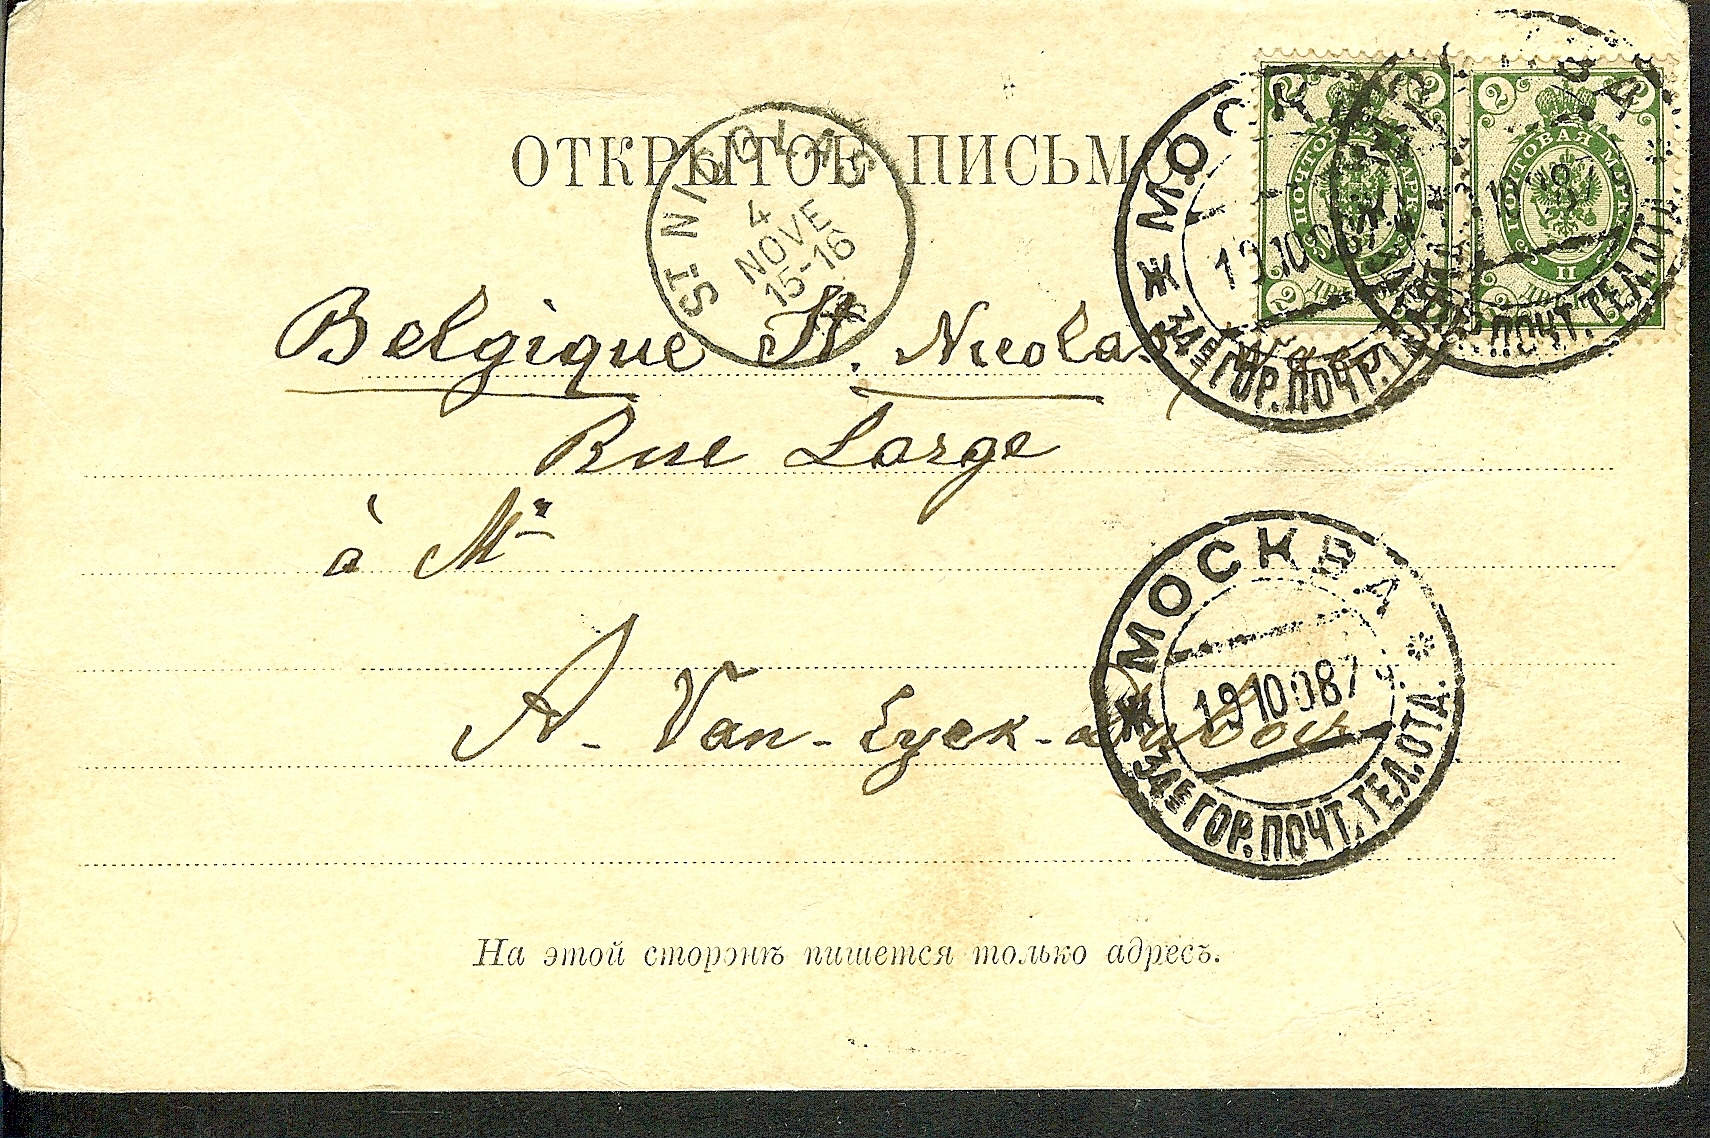 ОТКРЫТОЕ ПИСЬМО
ST NICOLAS
4
NOVE
15-16
МОСКВА
19 10 08
34Е ГОР. ПОЧТ.
2 2
ПОЧТОВАЯ МАРКА
2
2 2
ПОЧТОВАЯ МАРКА
II
2 2
ПОЧТ. ТЕЛ. ОТД.
Belgique St. Nicolas
Rue Large
à Mr
A. Van-Eyck-
МОСКВА
19 10 08 7
34Е ГОР. ПОЧТ. ТЕЛ. ОТД.
На этой сторонѣ пишется только адресъ.